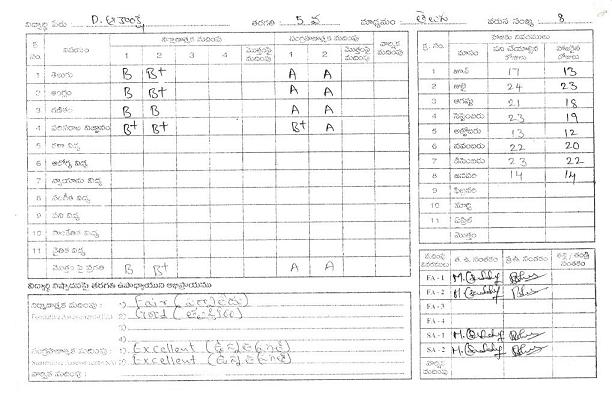 విద్యార్థి పేరు D. ఆకాంక్ష తరగతి 5 వ మాధ్యమం తెలుగు వరుస సంఖ్య 8
నిర్మాణాత్మక మదింపు సంగ్రహణాత్మక మదింపు
విషయం 1 2 3 4 మొత్తంపై మదింపు 1 2 మొత్తంపై మదింపు
1 తెలుగు B B+ A A
2 ఆంగ్లం B B+ A A
3 గణితం B B A A
4 పరిసరాల విజ్ఞానం B+ B+ B+ A
5 కళా విద్య
6 ఆరోగ్య విద్య
7
8 సంగీత విద్య
9 పని విద్య
10
11 నైతిక విద్య
మొత్తం పై ప్రగతి B B+ A A
విద్యార్థి నిష్పాదనపై తరగతి ఉపాధ్యాయుని అభిప్రాయము
నిర్మాణాత్మక మదింపు : 1) Fair (పర్వాలేదు)
2) Good (బాగుంది)
3)
4)
సంగ్రహణాత్మక మదింపు : 1) Excellent
2) Excellent
వార్షిక మదింపు :
హాజరు వివరములు
క్ర. నం. మాసం పని చేయాల్సిన రోజులు హాజరైన రోజులు
1 జూన్ 17 13
2 జులై 24 23
3 ఆగష్టు 21 18
4 సెప్టెంబరు 23 19
5 అక్టోబరు 13 12
6 నవంబరు 22 20
7 డిసెంబరు 23 22
8 జనవరి 14 14
9 ఫిబ్రవరి
10 మార్చి
11 ఏప్రిల్
మొత్తం
మదింపు వివరములు త. ఉ. సంతకం ప్ర.ఉ. సంతకం తల్లి / తండ్రి సంతకం
FA - 1
FA - 2
FA - 3
FA - 4
SA - 1
SA - 2
వార్షిక మదింపు